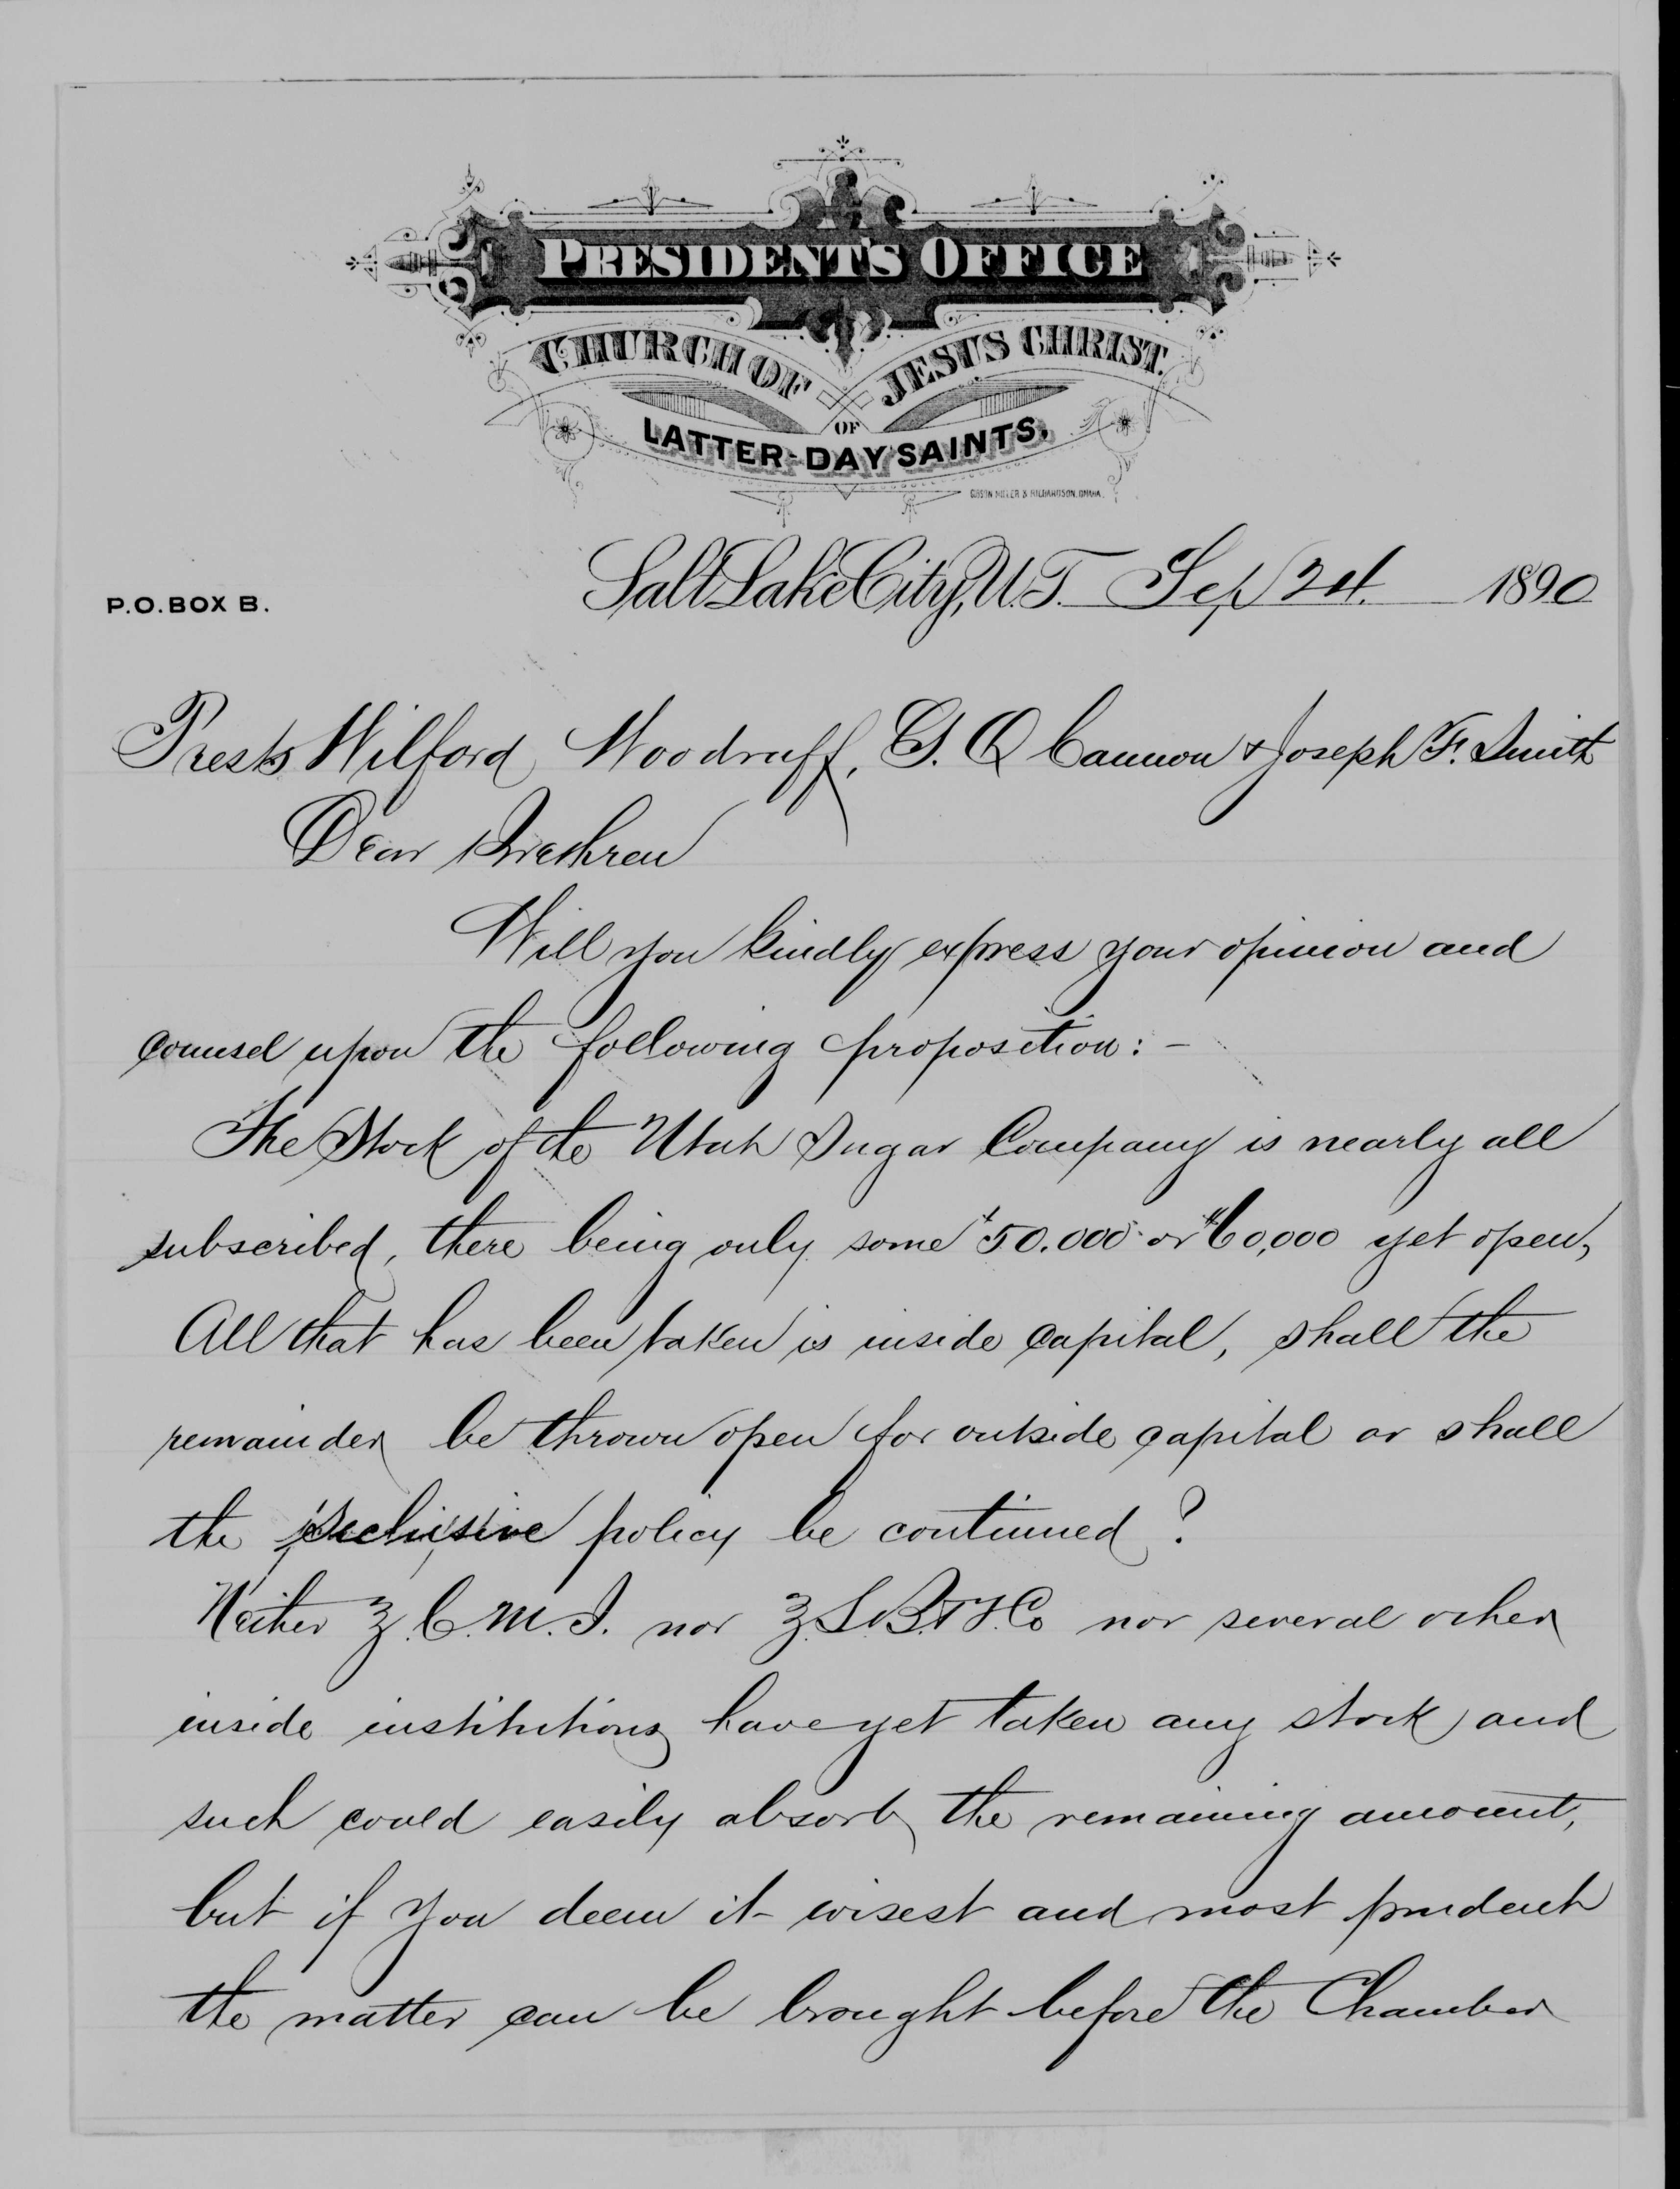 PRESIDENT'S OFFICE
CHURCH OF JESUS CHRIST.
OF
LATTER-DAY SAINTS.
P.O. BOX B.
Salt Lake City, U.T. Sep 24. 1890
Prests Wilford Woodruff, G. Q Cannon & Joseph F. Smith
Dear Brethren
Will you kindly express your opinion and
counsel upon the following proposition: -
The Stock of the Utah Sugar Company is nearly all
subscribed, there being only some $50.000 or $60,000 yet open,
All that has been taken is inside capital, shall the
remainder be thrown open for outside capital or shall
the policy be continued?
Neither Z.C.M.I. nor Z.S.B.&T.Co nor several other
inside institutions have yet taken any stock and
such could easily absorb the remaining amount,
but if you deem it wisest and most prudent
the matter can be brought before the Chamber